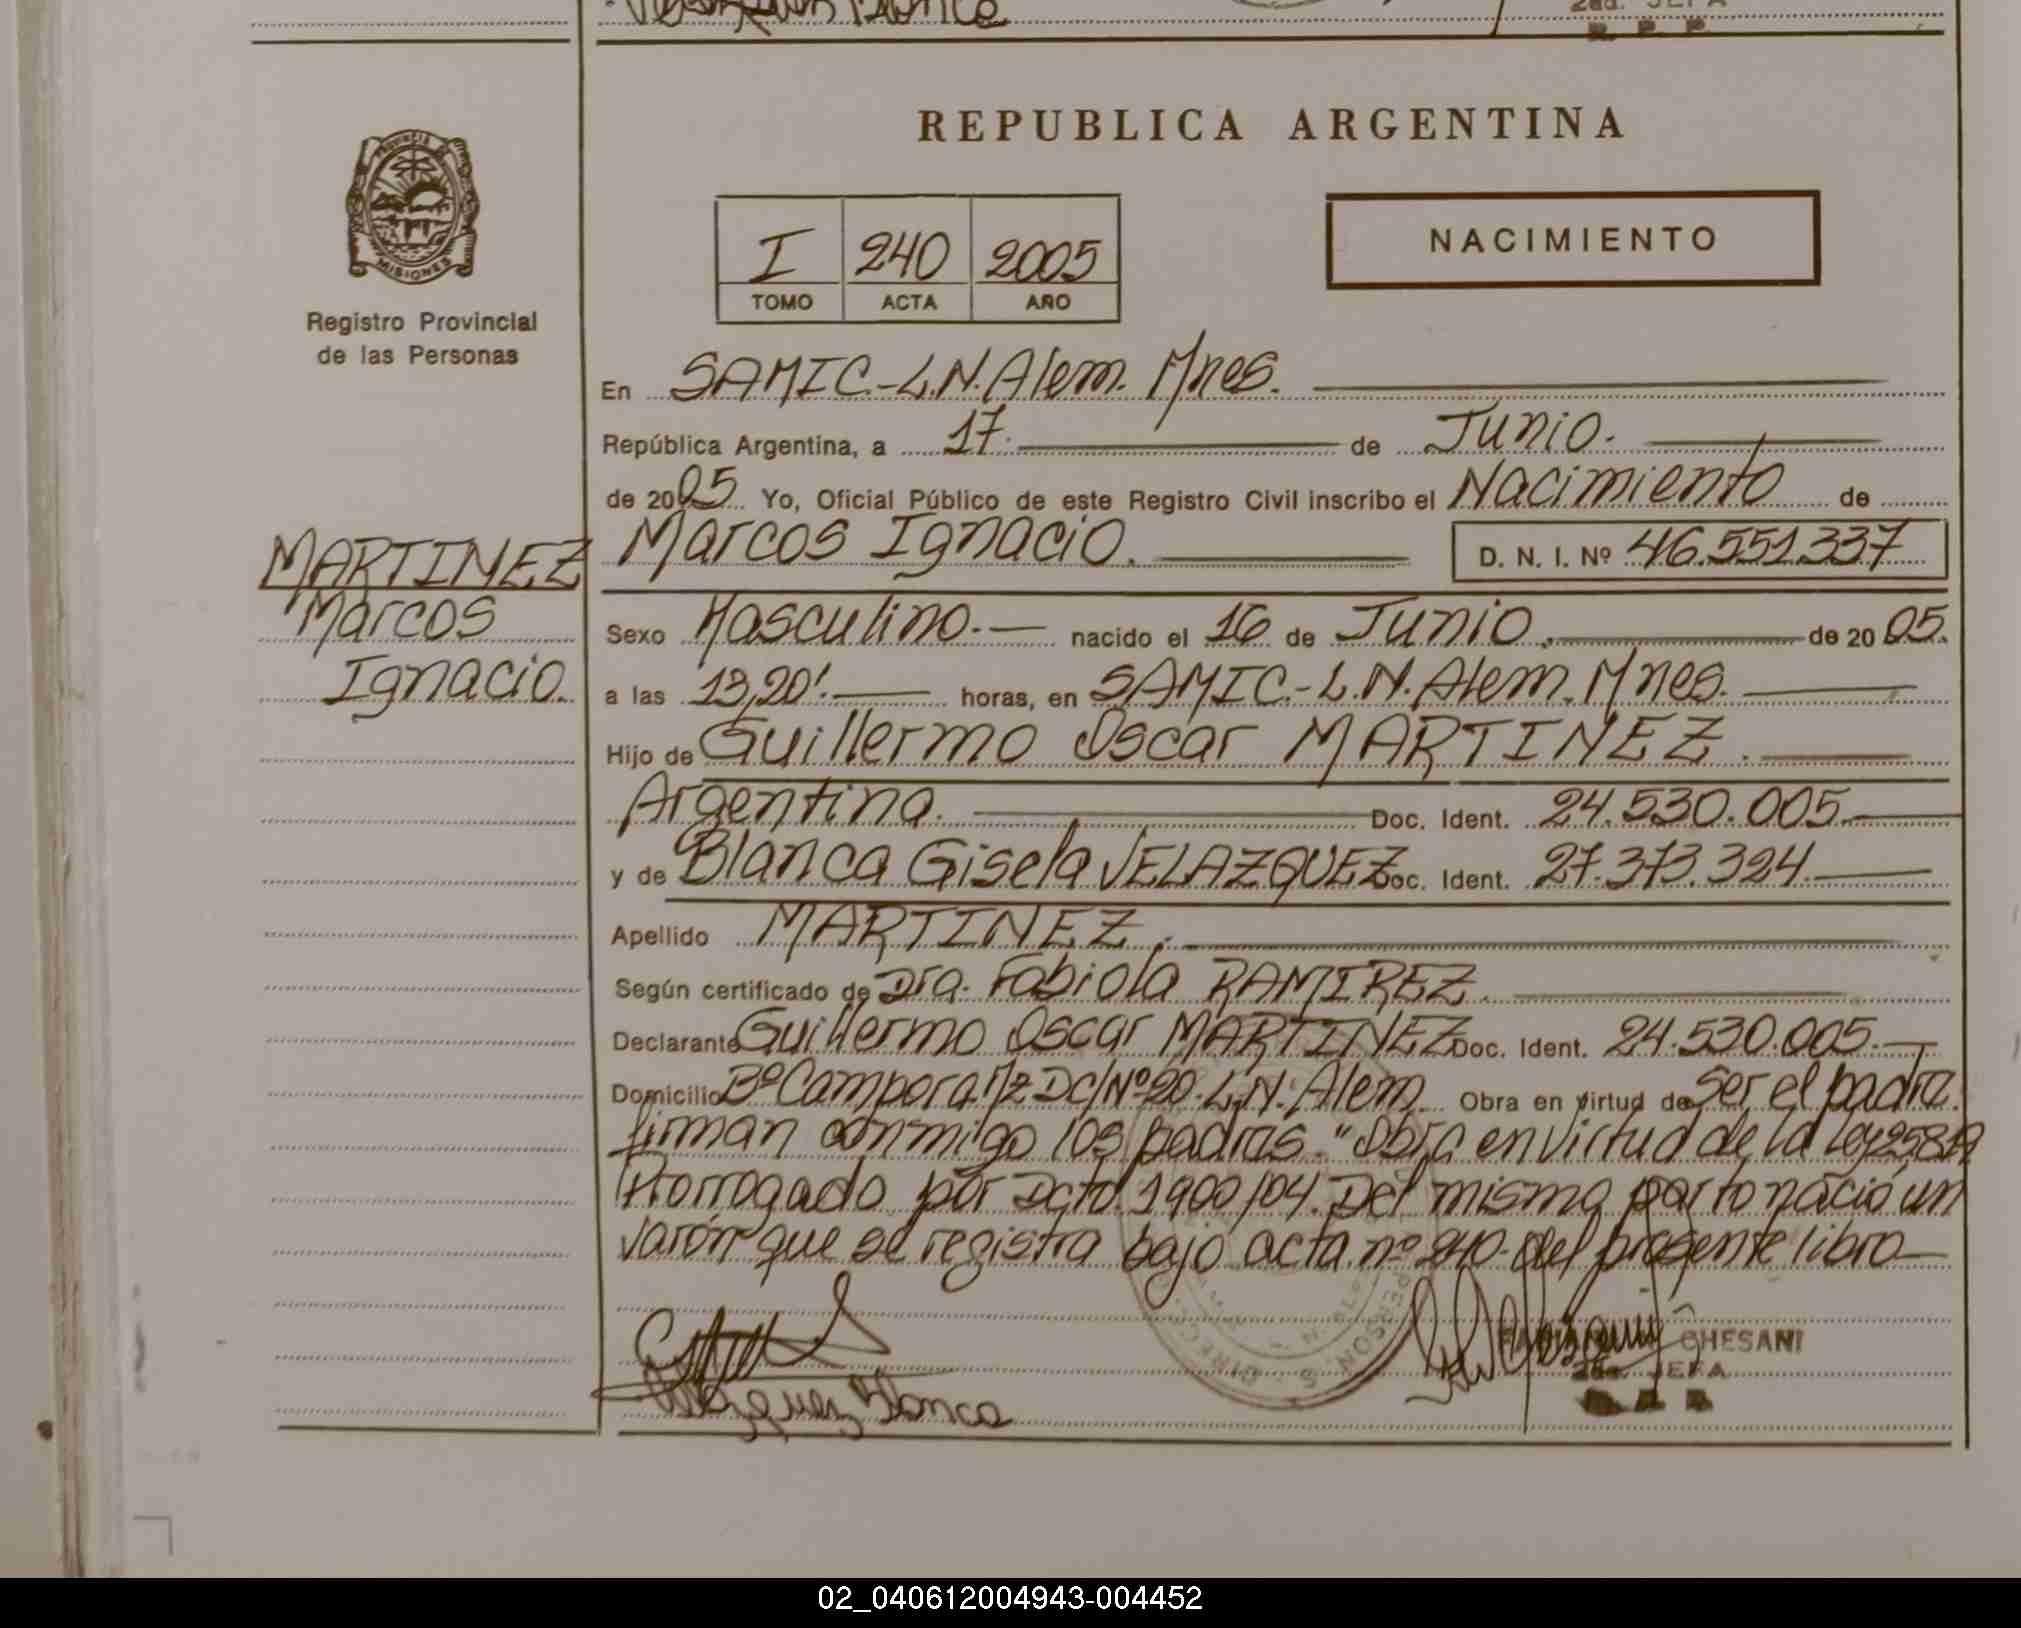 2da. JEFA
R. P. P.
PROVINCIA DE
MISIONES
Registro Provincial
de las Personas
MARTINEZ
Marcos
Ignacio.
REPUBLICA ARGENTINA
I 240 2005
TOMO ACTA AÑO
NACIMIENTO
En SAMIC.-L.N. Alem. Mnes.
República Argentina, a 17. de Junio.
de 2005 Yo, Oficial Público de este Registro Civil inscribo el Nacimiento de
Marcos Ignacio. D. N. I. Nº 46.551.337
Sexo Masculino.- nacido el 16 de Junio. de 2005.
a las 13,20'. horas, en SAMIC.-L.N. Alem. Mnes.
Hijo de Guillermo Oscar MARTINEZ.
Argentina. Doc. Ident. 24.530.005.
y de Blanca Gisela VELAZQUEZ Doc. Ident. 27.373.324.
Apellido MARTINEZ.
Según certificado de Dra. Fabiola RAMIREZ.
Declarante Guillermo Oscar MARTINEZ Doc. Ident. 24.530.005.
Domicilio Bº Campora Mz D C/Nº 20. L.N. Alem Obra en virtud de Ser el padre.
firman conmigo los padres. "Obra en virtud de la Ley 25819
Prorrogado por Dcto. 1900/04. Del mismo parto nació un
varón que se registra bajo acta nº 240 del presente libro
CHESANI
2da. JEFA
Velazquez Blanca
02_040612004943-004452